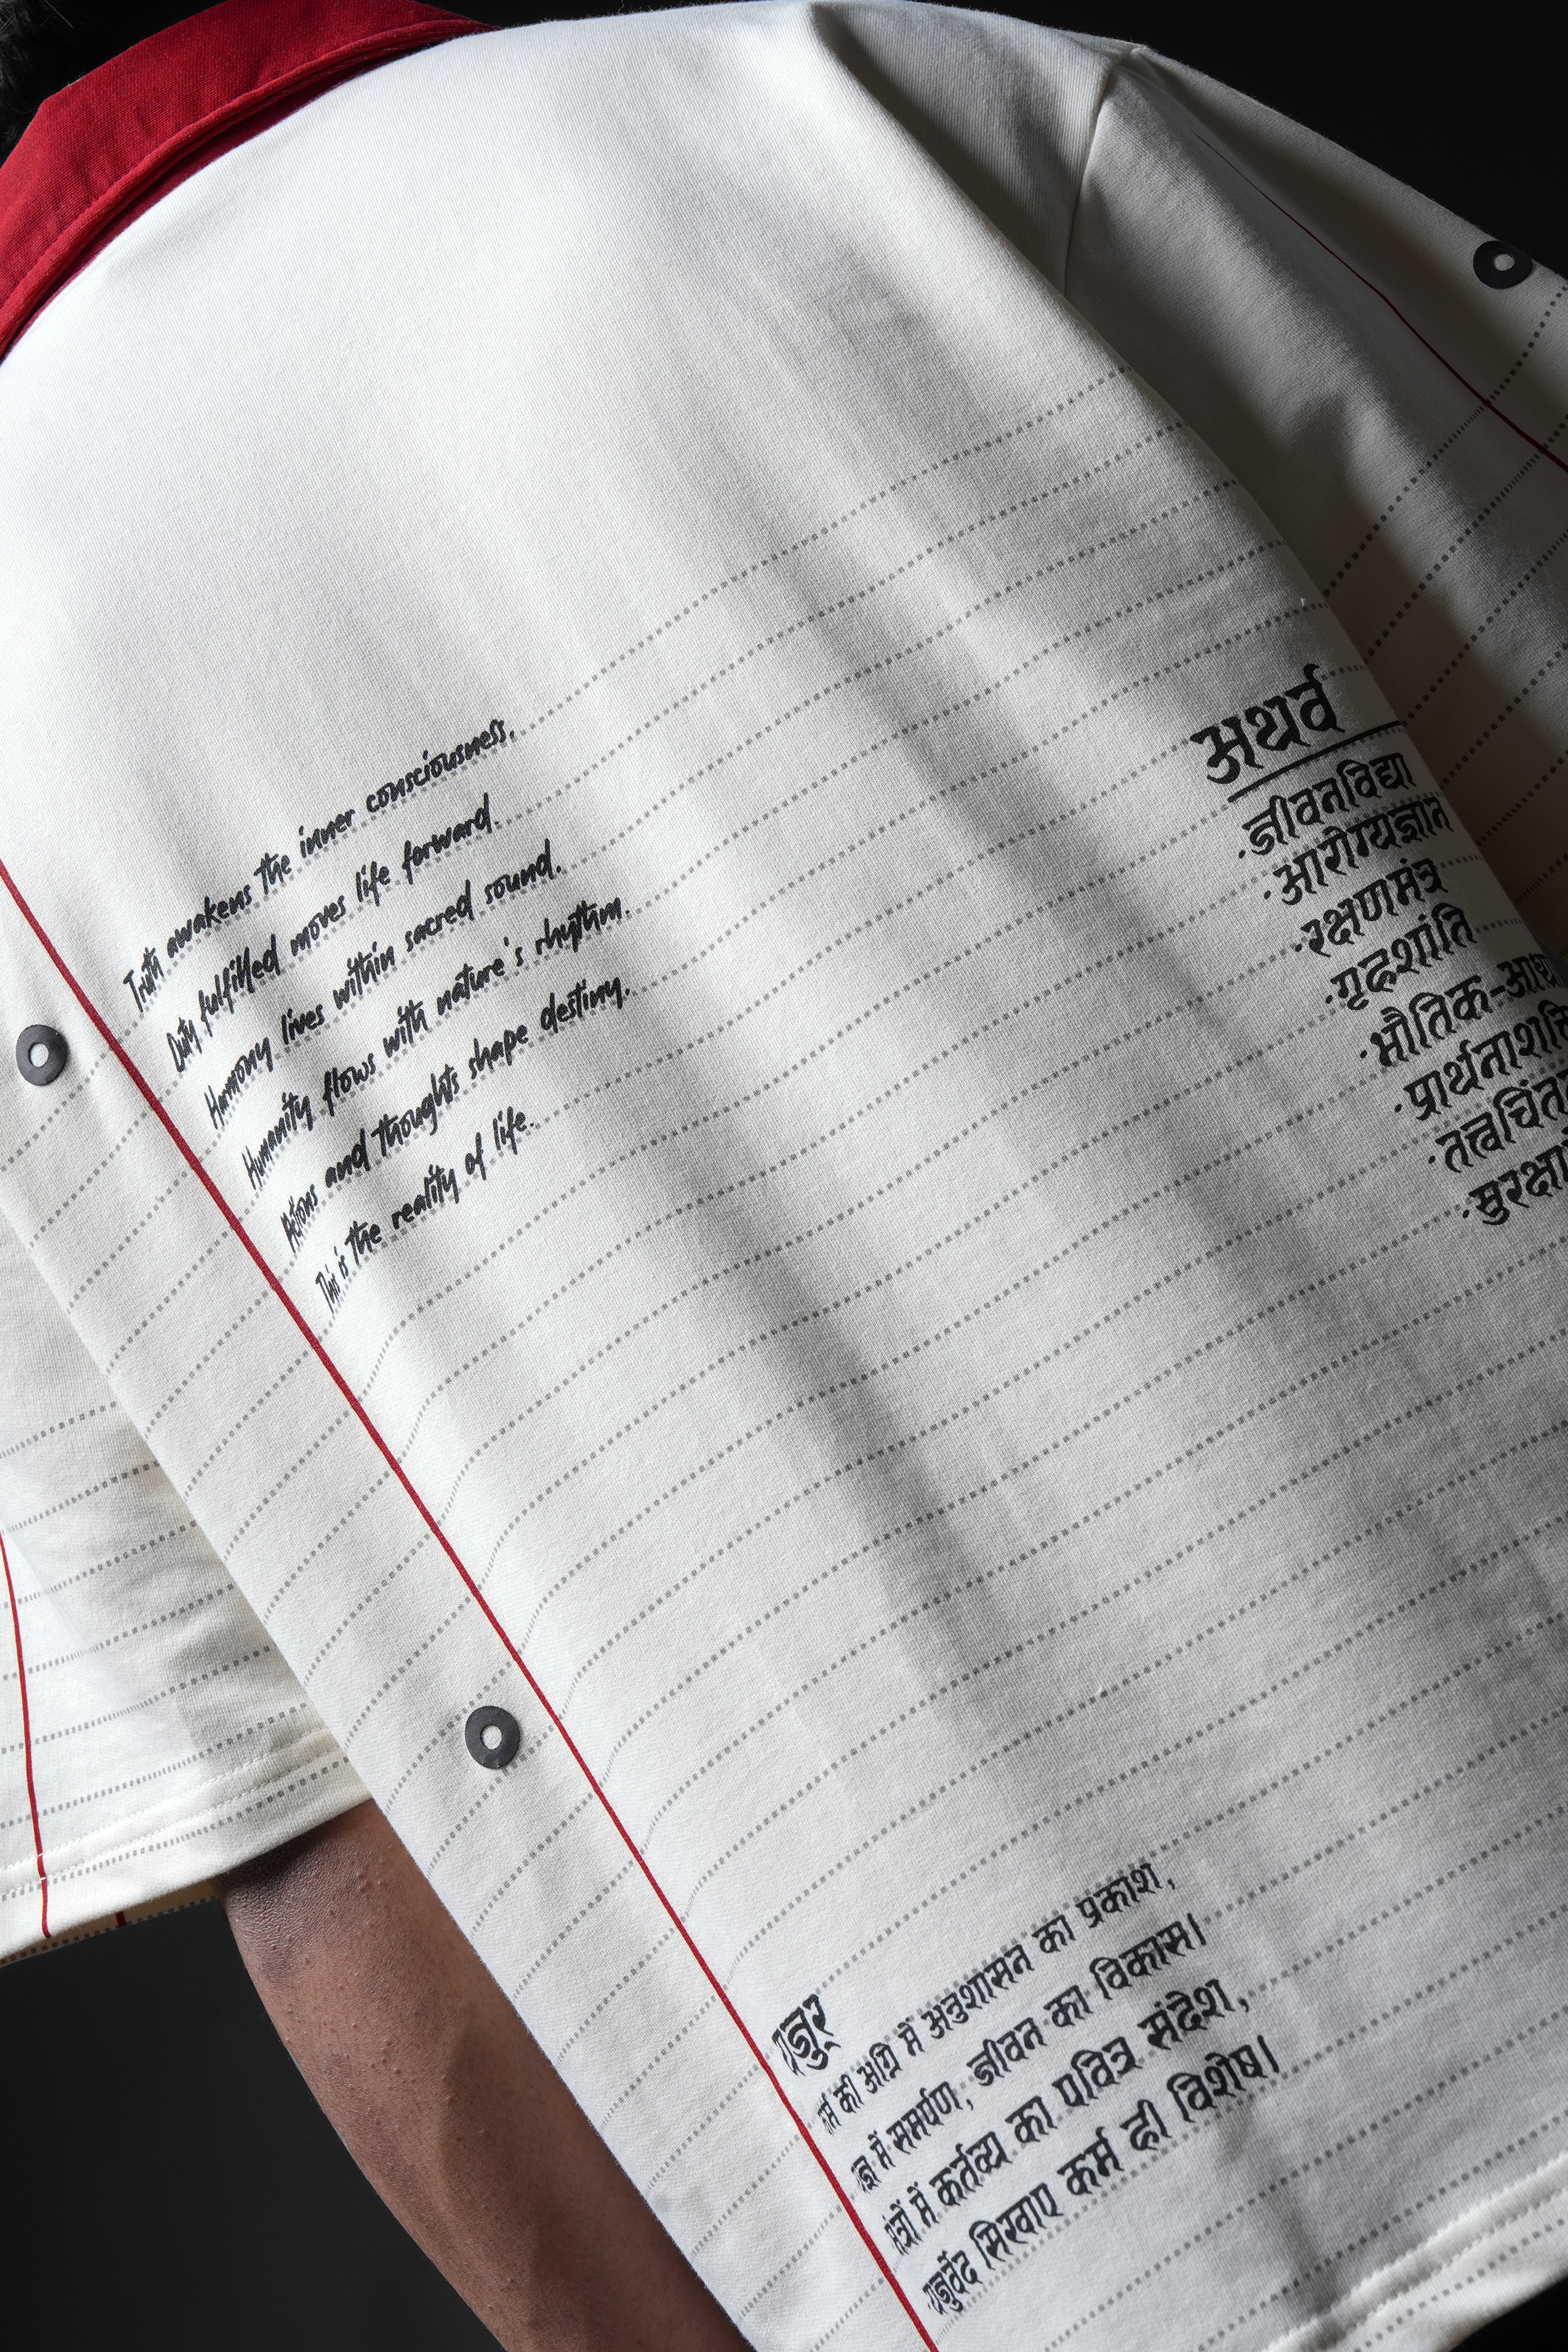 Truth awakens the inner consciousness,
Duty fulfilled moves life forward
Harmony lives within sacred sound.
Humanity flows with nature's rhythm.
Actions and thoughts shape destiny.
This is the reality of life.
अथर्व
·जीवनविद्या
·आरोग्यज्ञान
·रक्षणमंत्र
·गृहशांति
·भौतिक-
यजुर्
की अग्नि में अनुशासन का प्रकाश,
में समर्पण, जीवन का विकास।
में कर्तव्य का पवित्र संदेश,
यजुर्वेद सिखाए कर्म ही विशेष।